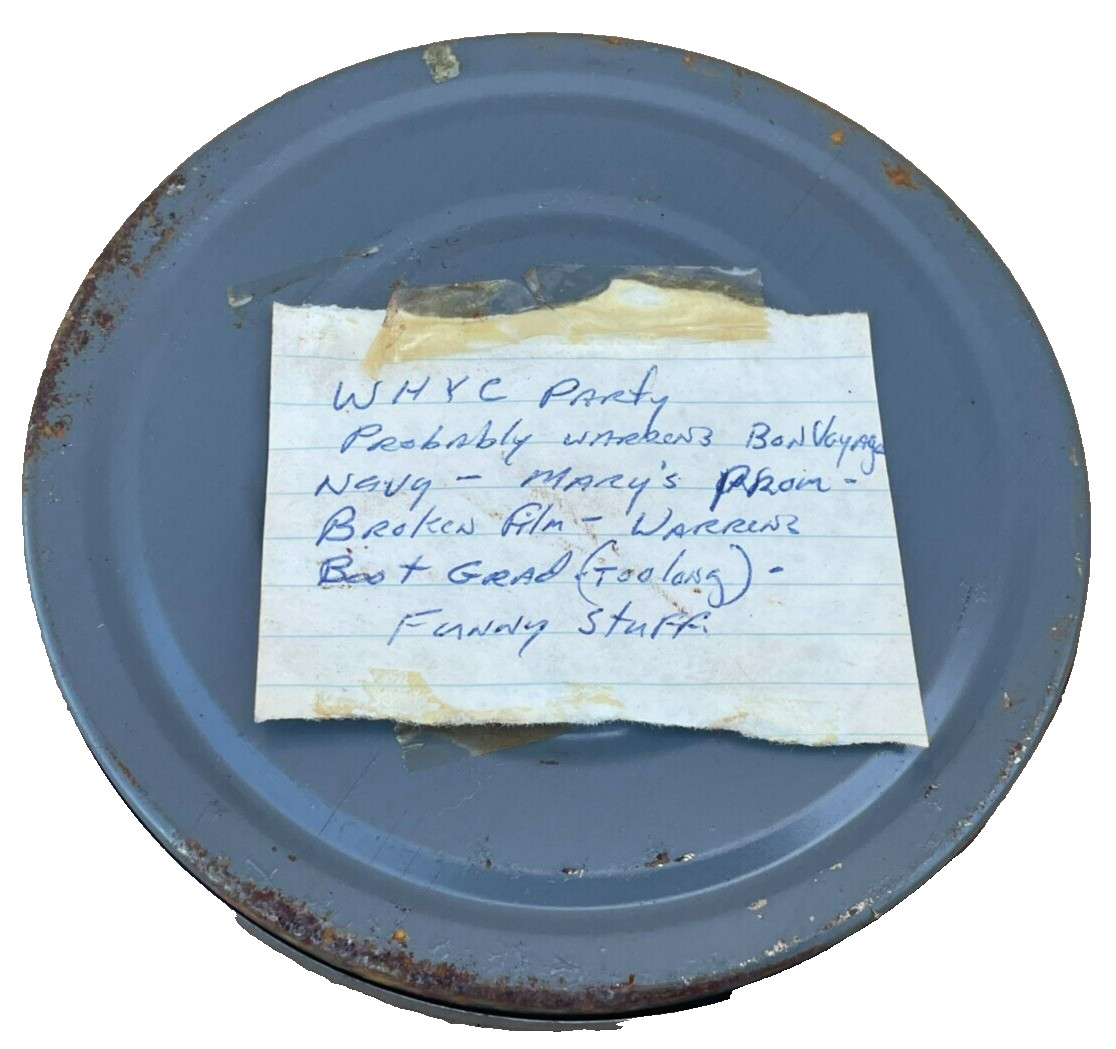 WHYC Party
Probably Warrens Bon Voyage
Navy - Mary's Prom -
Broken Film - Warrens
Boot Grad (Too long) -
Funny Stuff.